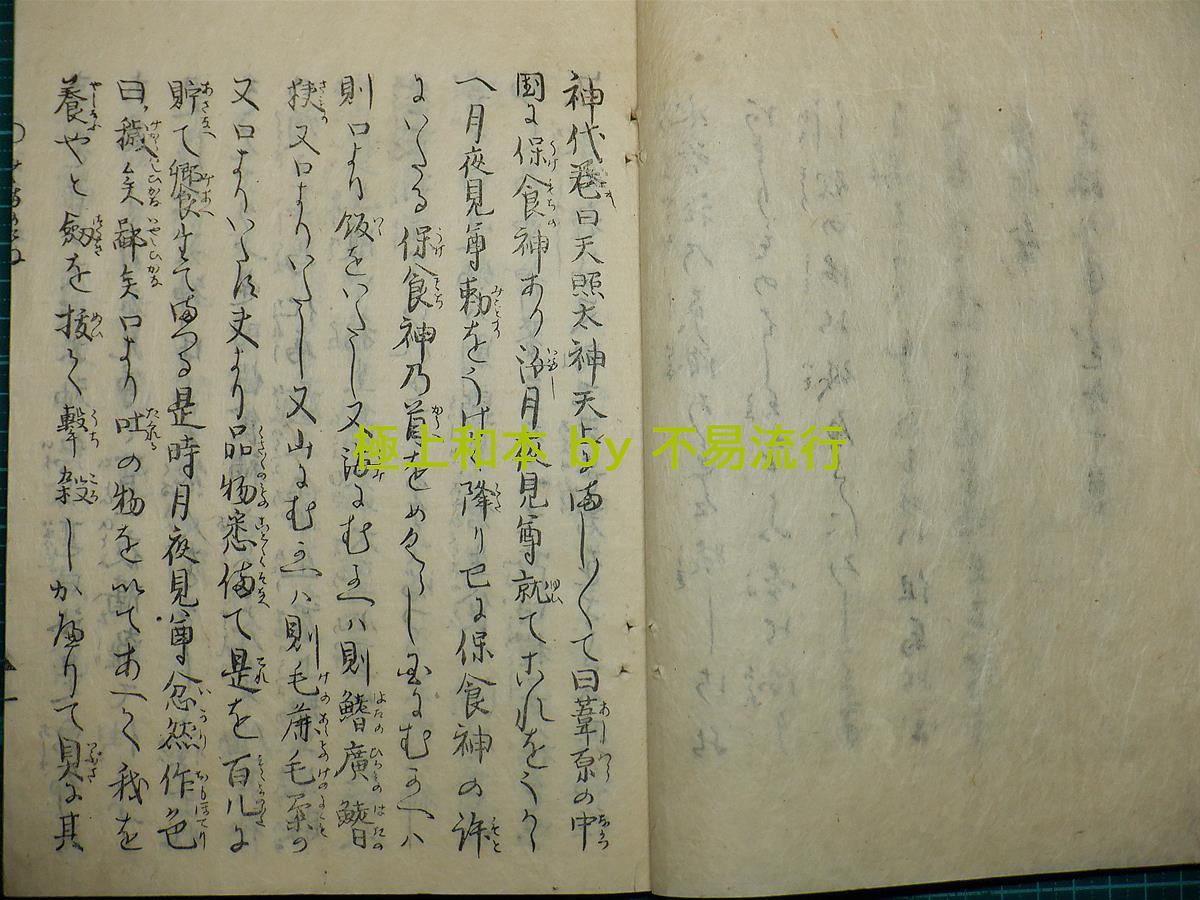 神代巻曰天照太神天上にましく/\て曰葦原の中
国に保食神あり汝月夜見尊就てこれをうか
へ月夜見尊勅をうけ降り已に保食神の許
にいたる保食神乃首をめくらし国にむかへハ
則口より飯をいたし又海にむかへハ則鰭廣鰭
狭又口よりいたし又山にむかへハ則毛麁毛柔の
又口よりいたす夫より品物悉備て是を百几に
貯て饗たてまつる是時月夜見尊忿然作色
曰穢矣鄙矣口より吐の物を以てあへて我を
養やと剱を抜て撃殺しかへりて具に其
極上和本 by 不易流行